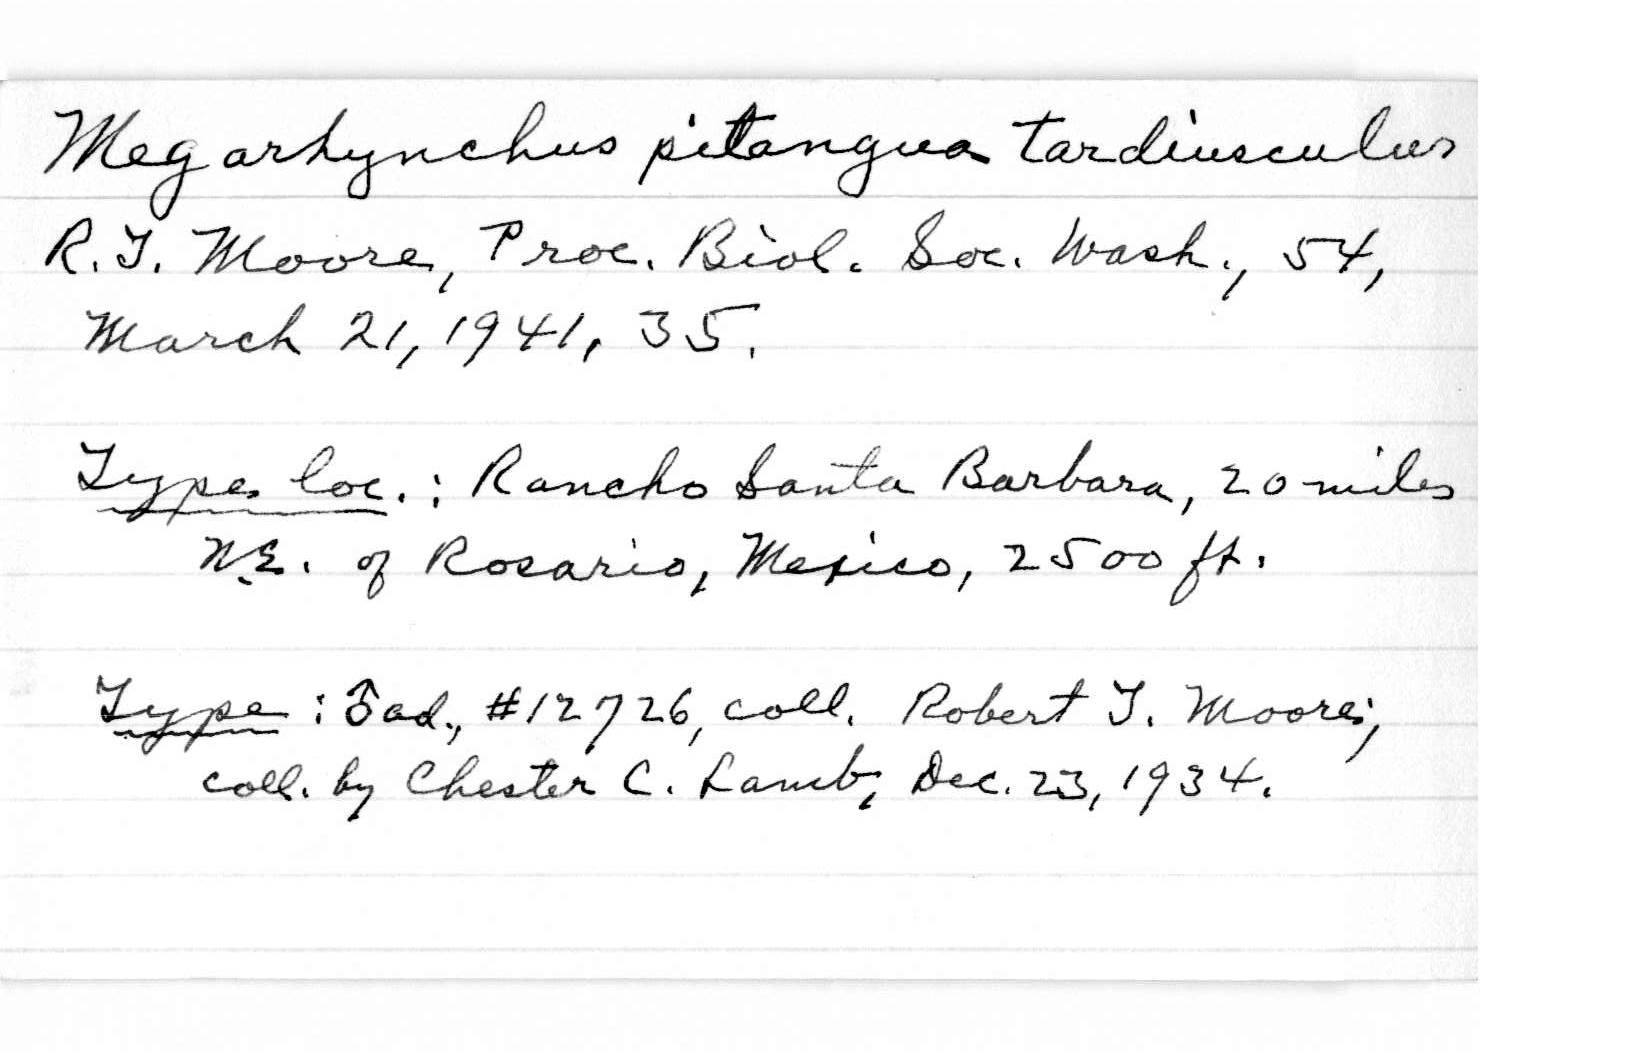 Megarhynchus pitangua tardiusculus
R.T. Moore, Proc. Biol. Soc. Wash., 54,
March 21, 1941, 35.
Type loc.: Rancho Santa Barbara, 20 miles
N.E. of Rosario, Mexico, 2500 ft.
Type: ♂ ad., #12726, coll. Robert T. Moore;
coll. by Chester C. Lamb, Dec. 23, 1934.